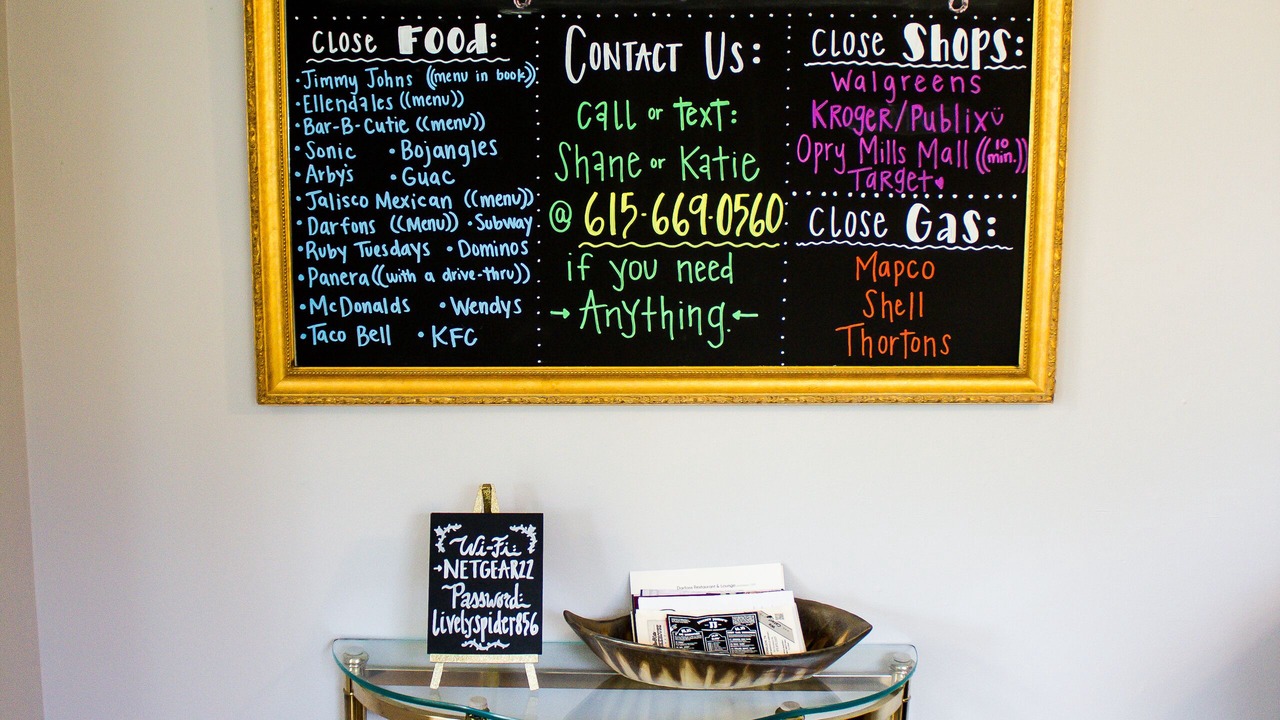 Close Food:
• Jimmy Johns ((menu in book))
• Ellendales ((menu))
• Bar-B-Cutie ((menu))
• Sonic • Bojangles
• Arby's • Guac
• Jalisco Mexican ((menu))
• Darfons ((Menu)) • Subway
• Ruby Tuesdays • Dominos
• Panera ((with a drive-thru))
• McDonalds • Wendys
• Taco Bell • KFC
Contact Us:
Call or text:
Shane or Katie
@ 615-669-0560
if you need
→ Anything. ←
Close Shops:
Walgreens
Kroger/Publix ü
Opry Mills Mall ((10 min.))
Target ♥
Close Gas:
Mapco
Shell
Thortons
Wi-Fi:
→NETGEAR22
Password:
livelyspider856
Darfons Restaurant & Lounge